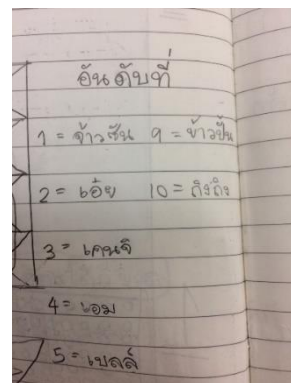 อันดับที่
1 = ข้าวซัน 9 = ข้าวปั้น
2 = เอ๋ย 10 = ถิงถิง
3 = เคนจิ
4 = เอม
5 = เบลล์